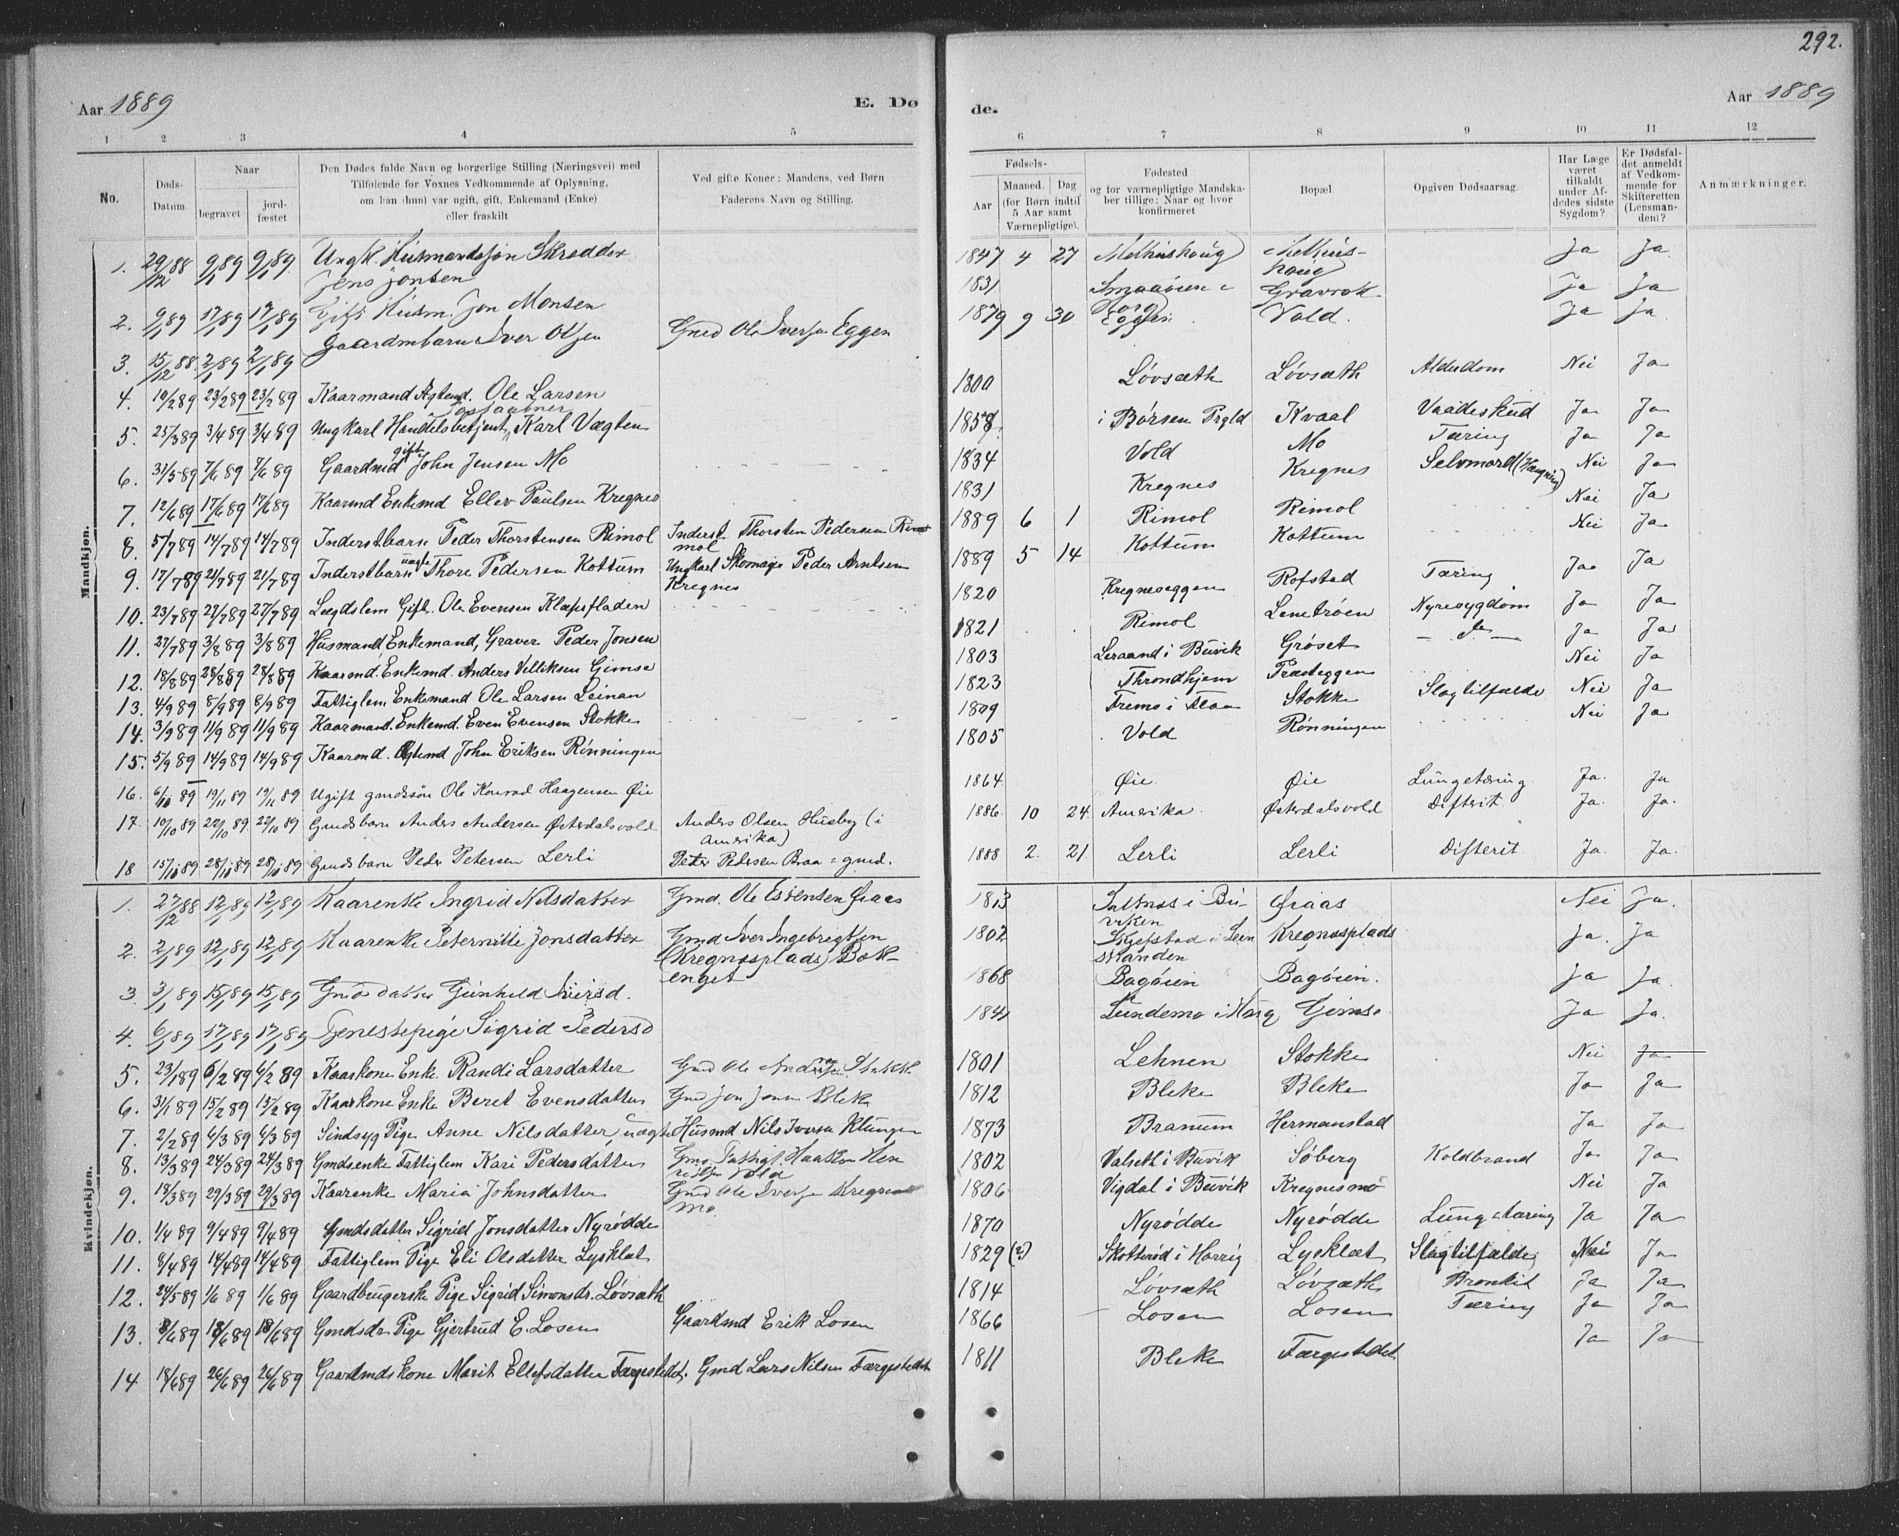 292.
Aar 1889 E. Dø
de. Aar 1889
1 2 3 4 5
6 7 8 9 10 11 12
No.
Døds-
Datum.
Naar
begravet
jord-
fæstet
Den Dødes fulde Navn og borgerlige Stilling (Næringsvei) med
Tilføiende for Voxnes Vedkommende af Oplysning,
om han (hun) var ugift, gift, Enkemand (Enke)
eller fraskilt
Ved gifte Koner: Mandens, ved Børn
Faderens Navn og Stilling.
Fødsels-
Aar
Maaned.
Dag
(for Børn indtil
5 Aar samt
Værnepligtige).
Fødested
og for værnepligtige Mandska-
ber tillige: Naar og hvor
konfirmeret
Bopæl.
Opgiven Dødsaarsag.
Har Læge
været
tilkaldt
under Af-
dødes sidste
Sygdom?
Er Dødsfal-
det anmeldt
af Vedkom-
mende for
Skifteretten
(Lensman-
den)?
Anmærkninger.
Mandkjøn.
1. 29/12 88 9/1 89 9/1 89 Ungk. Husmandssøn Skrædder
Jens Jonsen 1847 4 27 Melhushoug Melhus-
houg Ja Ja
2. 9/1 89 17/1 89 17/1 89 Gift Husm. Jon Monsen 1831 Gravrok Ja Ja
3. 15/12 88 2/1 89 2/1 89 Gaardmbarn Iver Olsen Gmd Ole Iversen Eggen 1879 9 30 Eggen Vold. Ja Ja
4. 10/2 89 23/2 89 23/2 89 Kaarmand Ægtemd. Ole Larsen 1800 Løvsæth Løvsæth Alderdom Nei Ja
5. 25/3 89 3/4 89 3/4 89 Ungkarl Handelsbetjent, Karl Vægten 1858 i Børsen Prgld Kvaal Vaadeskud Ja Ja
6. 31/5 89 7/6 89 7/6 89 Gaardmd gift John Jensen Mo 1834 Vold Mo Tæring Ja Ja
7. 12/6 89 17/6 89 17/6 89 Kaarmd Enkemd Ellev Paulsen Kregnes 1831 Kregnes Kregnes Selvmord (Hængning) Nei Ja
8. 5/7 89 14/7 89 14/7 89 Inderstbarn Peder Thorstensen Rimol Inderst Thorsten Pedersen Ri
mol 1889 6 1 Rimol Rimol Nei Ja
9. 17/7 89 21/7 89 21/7 89 Inderstbarn uægte Thore Pedersen Kottum Ungkarl Skomager Peder Arntsen
Kregnes 1889 5 14 Kottum Kottum Nei Ja
10. 23/7 89 27/7 89 27/7 89 Lægdslem Gift. Ole Evensen Klæpsfladen 1820 Kregneseggen Rofstad Tæring Ja Ja
11. 27/7 89 3/8 89 3/8 89 Husmand, Enkemand, Graver Peder Jonsen 1821 Rimol Lenetrøen Nyresygdom Ja Ja
12. 18/8 89 28/8 89 28/8 89 Kaarmd. Enkemd. Anders Gimse 1803 Leraand i Buvik Grøset - do - Ja Ja
13. 4/9 89 8/9 89 8/9 89 Fattiglem Enkemand Ole Larsen Leinan 1823 Throndhjem Præsteggen Nei Ja
14. 3/9 89 11/9 89 11/9 89 Kaarmand. Enkemd. Even Evensen Stokke 1809 Fremo i Flaa Stokke Slagtilfælde Nei Ja
15. 5/9 89 14/9 89 14/9 89 Kaarmd. Ægtemd John Eriksen Rønningen 1805 Vold Rønningen Nei Ja
16. 6/10 89 19/11 89 19/11 89 Ugift gmdssøn Ole Konrad Haagensen Øie 1864 Øie Øie Lungetæring Ja. Ja
17. 10/10 89 22/10 89 22/10 89 Gmdsbarn Anders Andersen Østerdalsvold Anders Olsen Husby (i
Amerika) 1886 10 24 Amerika Østerdalsvold Difterit Ja. Ja.
18 15/10 89 28/10 89 28/10 89 Gmdsbarn Peder Petersen Lerli Peter Pedersen Braa = gmd. 1888 2. 21. Lerli Lerli Difterit Ja. Ja.
Kvindekjøn.
1. 27/12 88 12/1 89 12/1 89 Kaarenke Ingrid Nilsdatter Gmd. Ole Estensen Øraas 1813 Saltnes i Bu-
viken Øraas Nei Ja.
2. 2/1 89 12/1 89 12/1 89 Kaarenke Peternille Jonsdatter Gmd Iver Ingebregtsen
(Kregnesplads) Bok-
enget 1802 Skjefstad i Lein
stranden Kregnesplads Ja. Ja
3. 3/1 89 15/1 89 15/1 89 Gmdsdatter Gunhild Iversd. 1868 Bagøien Bagøien. Ja Ja.
4. 6/1 89 17/1 89 17/1 89 Tjenestepige Sigrid Pedersd 1841 Lundemo i Horg Gimse Ja Ja.
5. 23/1 89 6/2 89 6/2 89 Kaarkone Enke Randi Larsdatter Gmd Ole Andersen Stokke 1801 Lehnen Stokke Nei Ja
6. 31/1 89 15/2 89 15/2 89 Kaarkone Enke Beret Evensdatter Gmd Jon Bleke 1812 Bleke Bleke Ja Ja
7. 2/2 89 6/3 89 6/3 89 Sindsyg Pige Anne Nilsdatter, uægte Husmd Nils Iversen Klungen 1873 Branum Hermanstad Ja Ja
8. 13/3 89 24/3 89 24/3 89 Gmdsenke Fattiglem Kari Pedersdatter Haakon Hen
riksen 1802 Valseth i Buvik Søberg Koldbrand Ja Ja
9. 18/3 89 29/3 89 29/3 89 Kaarenke Maria Johnsdatter Gmd Ole Iversen Kregnes
mo 1806 Vigdal i Buvik Kregnesmo Nei Ja
10. 1/4 89 9/4 89 9/4 89 Gmdsdatter Sigrid Jonsdatter Nyrødde 1870 Nyrødde Nyrødde Lungetæring Ja Ja
11. 8/4 89 14/4 89 14/4 89 Fattiglem Pige Eli Olsdatter Lysklæt 1829 (?) Skotterød i Horrig Lysklæt Slagtilfælde Nei Ja
12. 24/5 89 1/6 89 1/6 89 Gaardbrugerske Pige Sigrid Simonsdr. Løvsæth 1814 Løvsæth Løvsæth Bronkit Ja Ja
13. 8/6 89 18/6 89 18/6 89 Gmdsdr Pige Gjertrud E. Losen Gaardmd Erik Losen 1866 Losen Losen Tæring Ja Ja
14 18/6 89 26/6 89 26/6 89 Gaardmdskone Marit Ellefsdatter Færgestedet. Gmd Lars Nilsen Færgestedet 1811 Bleke Færgestedet Ja Ja